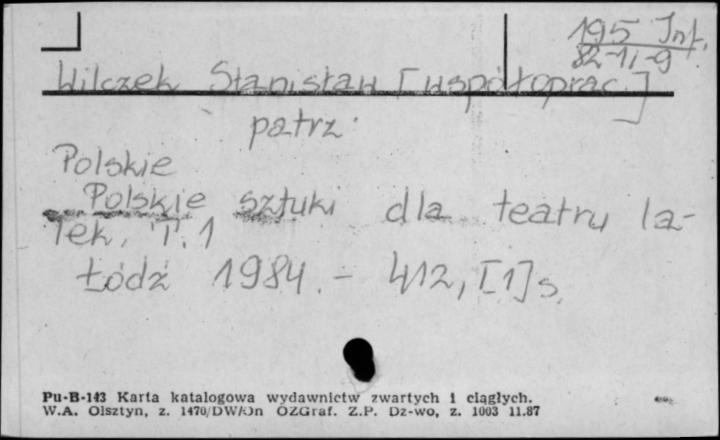 195 Inf.
82-11-9
Wilczek Stanisław [współoprac.]
patrz:
Polskie
Polskie sztuki dla teatru la-
lek. T. 1
Łódź 1984. – 412, [1] s.
Pu-B-143 Karta katalogowa wydawnictw zwartych i ciągłych.
W.A. Olsztyn, z. 1470/DW/On OZGraf. Z.P. Dz-wo, z. 1003 11.87